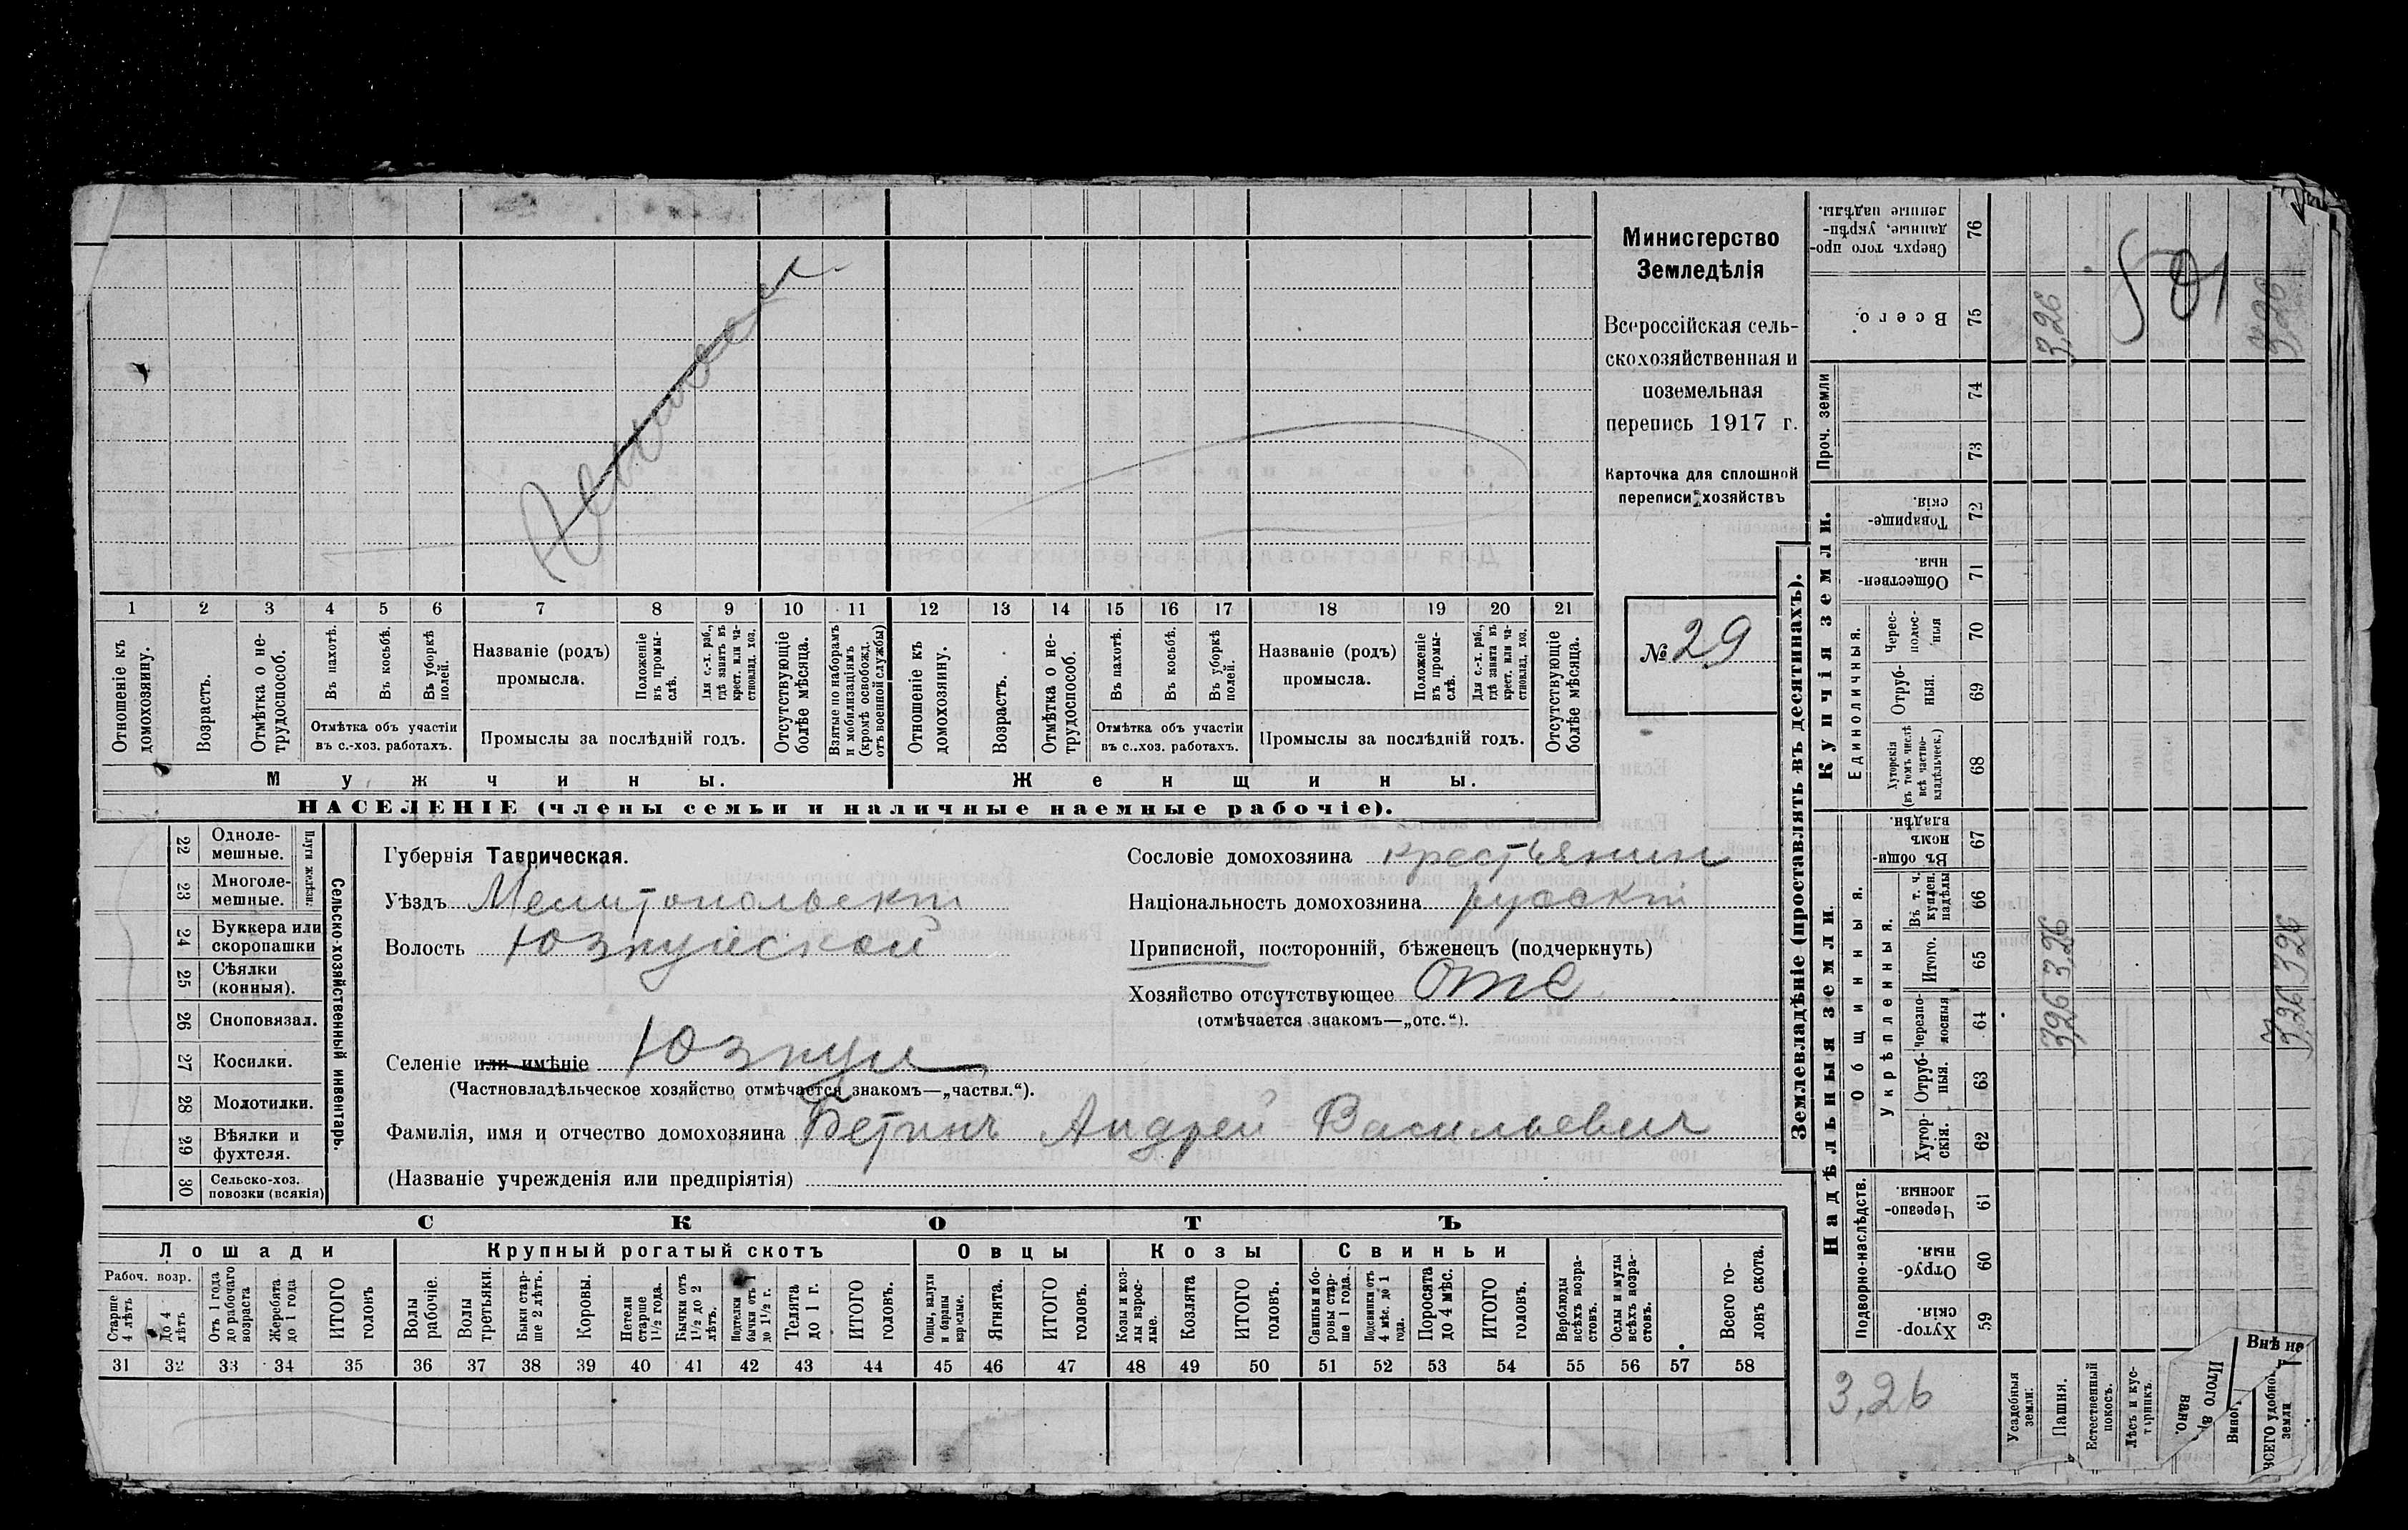 Министерство
Земледѣлія
Всероссійская сель-
скохозяйственная и
поземельная
перепись 1917 г.
Карточка для сплошной
переписи хозяйствъ
№ 29
501
1 2 3 4 5 6 7 8 9 10 11 12 13 14 15 16 17 18 19 20 21
Отношеніе къ домохозяину.
Возрастъ.
Отмѣтка о не-трудоспособ.
Въ пахотѣ.
Въ косьбѣ.
Въ уборкѣ полей.
Отмѣтка объ участіи
въ с.-хоз. работахъ.
Названіе (родъ)
промысла.
Положеніе въ промы-слѣ.
Для с.-х. раб., гдѣ занятъ въ крест. или ча-стновлад. хоз.
Промыслы за послѣдній годъ.
Отсутствующіе болѣе мѣсяца.
Взятые по наборамъ и мобилизаціямъ (кромѣ освобожд. отъ военной службы)
Отношеніе къ домохозяину.
Возрастъ.
Отмѣтка о не-трудоспособ.
Въ пахотѣ.
Въ косьбѣ.
Въ уборкѣ полей.
Отмѣтка объ участіи
въ с..хоз. работахъ.
Названіе (родъ)
промысла.
Положеніе въ промы-слѣ.
Для с.-х. раб., гдѣ занята въ крест. или ча-стновлад. хоз.
Промыслы за послѣдній годъ.
Отсутствующіе болѣе мѣсяца.
Мужчины.
Женщины.
НАСЕЛЕНІЕ (члены семьи и наличные наемные рабочіе).
22 Одноле-мешные.
23 Многоле-мешные.
Плуги желѣзн.
24 Буккера или скоропашки
25 Сѣялки (конныя).
26 Сноповязал.
27 Косилки.
28 Молотилки.
29 Вѣялки и фухтеля.
30 Сельско-хоз. повозки (всякія)
Сельско-хозяйственный инвентарь.
Губернія Таврическая.
Уѣздъ Мелитопольскій
Волость Юзкуйской
Селеніе или имѣніе Юзкуи
(Частновладѣльческое хозяйство отмѣчается знакомъ—„частвл.“).
Фамилія, имя и отчество домохозяина Бетинъ Андрей Васильевич
(Названіе учрежденія или предпріятія)
Сословіе домохозяина крестьянин
Національность домохозяина русскій
Приписной, посторонній, бѣженецъ (подчеркнуть)
Хозяйство отсутствующее отс
(отмѣчается знакомъ—„отс.“).
СКОТЪ
Лошади
Рабоч. возр.
Старше 4 лѣтъ
До 4 лѣтъ
Отъ 1 года до рабочаго возраста
Жеребята до 1 года
ИТОГО головъ
Крупный рогатый скотъ
Волы рабочіе.
Волы третьяки.
Быки стар-ше 2 лѣтъ.
Коровы.
Нетели старше 1½ года.
Бычки отъ 1½ до 2 лѣтъ.
Подтелки бычки отъ 1 до 1½ г.
Телята до 1 г.
ИТОГО головъ.
Овцы
Овцы, валухи и бараны взрослые.
Ягнята.
ИТОГО головъ.
Козы
Козы и коз-лы взрос-лые.
Козлята
ИТОГО головъ.
Свиньи
Свиньи и бо-ровы стар-ше 1 года.
Подсвинки отъ 4 мѣс. до 1 года.
Поросята до 4 мѣс.
ИТОГО головъ.
Верблюды всѣхъ возра-стовъ.
Ослы и мулы всѣхъ возра-стовъ.
Всего го-ловъ скота.
31 32 33 34 35 36 37 38 39 40 41 42 43 44 45 46 47 48 49 50 51 52 53 54 55 56 57 58
Землевладѣніе (проставлять въ десятинахъ).
Сверхъ того про-данные, укрѣп-ленные надѣлы. 76
Всего. 75
Проч. земли
74
73
Купчія земли.
Товарище-скія. 72
Обществен-ныя. 71
Единоличныя.
Черес-полос-ныя 70
Отруб-ныя. 69
Хуторскія (въ томъ числѣ всѣ частно-владѣльческ.) 68
Надѣльныя земли
Общинныя.
Въ общи-номъ владѣн. 67
Укрѣпленныя.
Въ т. ч. куплен. надѣлы 66
Итого. 65
Черезпо-лосныя 64
Отруб-ныя. 63
Хутор-скія. 62
Подворно-наслѣдств.
Черезпо-лосныя. 61
Отруб-ныя. 60
Хутор-скія. 59
Усадебныя земли.
Пашня.
Естественный покосъ.
Лѣсъ и кус-тарникъ.
ВСЕГО удобной земли
Внѣ на
3,26
3,26
3,26 3,26
3,26
3,26 3,26